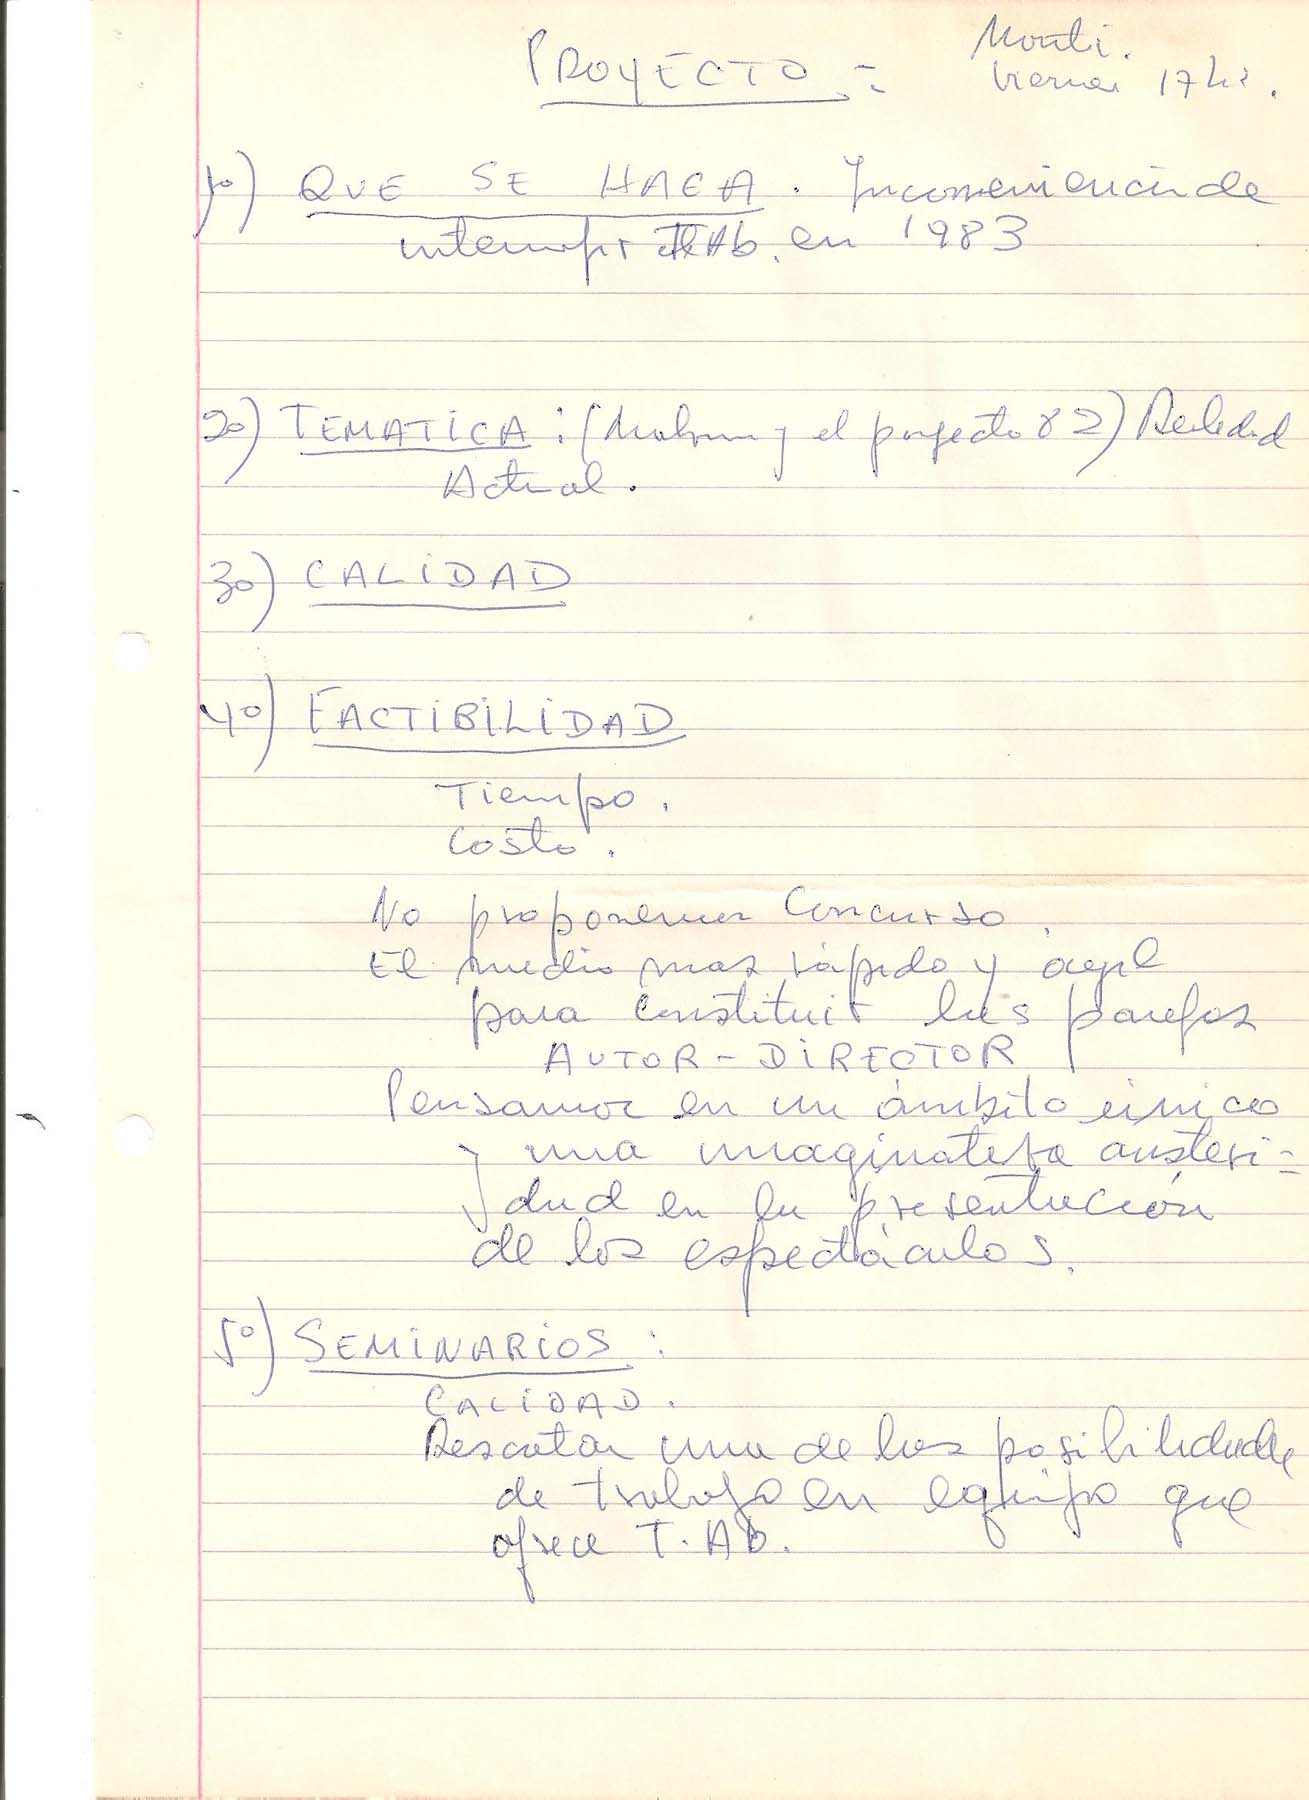 PROYECTO :
Monti.
Viernes 17 hs.
1º) QUE SE HAGA. Inconveniencia de
interrumpir T.Ab. en 1983
2º) TEMATICA: ( y el proyecto 82) Realidad
Actual.
3º) CALIDAD
4º) FACTIBILIDAD
Tiempo.
Costo.
No proponemos Concurso.
El medio mas rápido y ágil
para constituir las parejas
AUTOR - DIRECTOR
Pensamos en un ámbito único
y una imaginativa austeri=
dad en la presentación
de los espectáculos.
5º) SEMINARIOS:
CALIDAD.
Rescatar una de las posibilidades
de trabajo en equipo que
ofrece T. Ab.